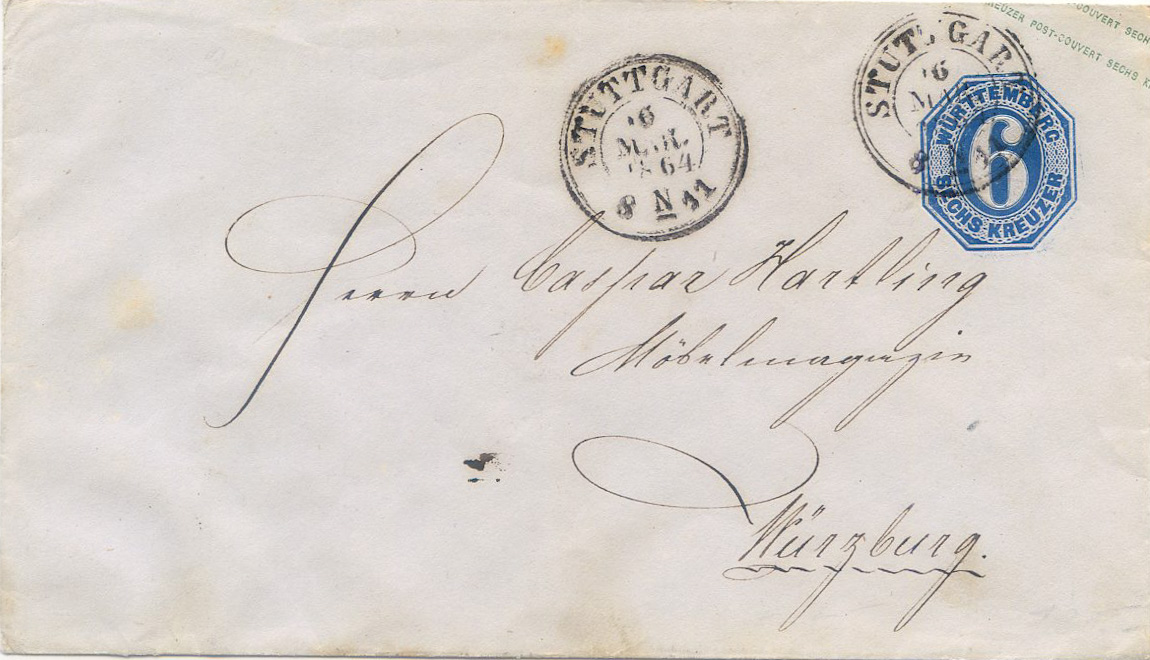 REUZER POST-COUVERT SECHS K
COUVERT SECH
STUTTGART
16
MAR.
1864
8 N 11
STUTTGAR
16
MAR
WÜRTTEMBERG
6
SECHS KREUZER
Herrn Caspar Hartling
Möbelmagazin
Würzburg.